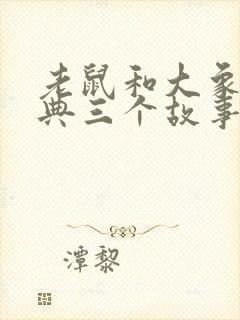 老鼠和大象
典三个故事
潭黎